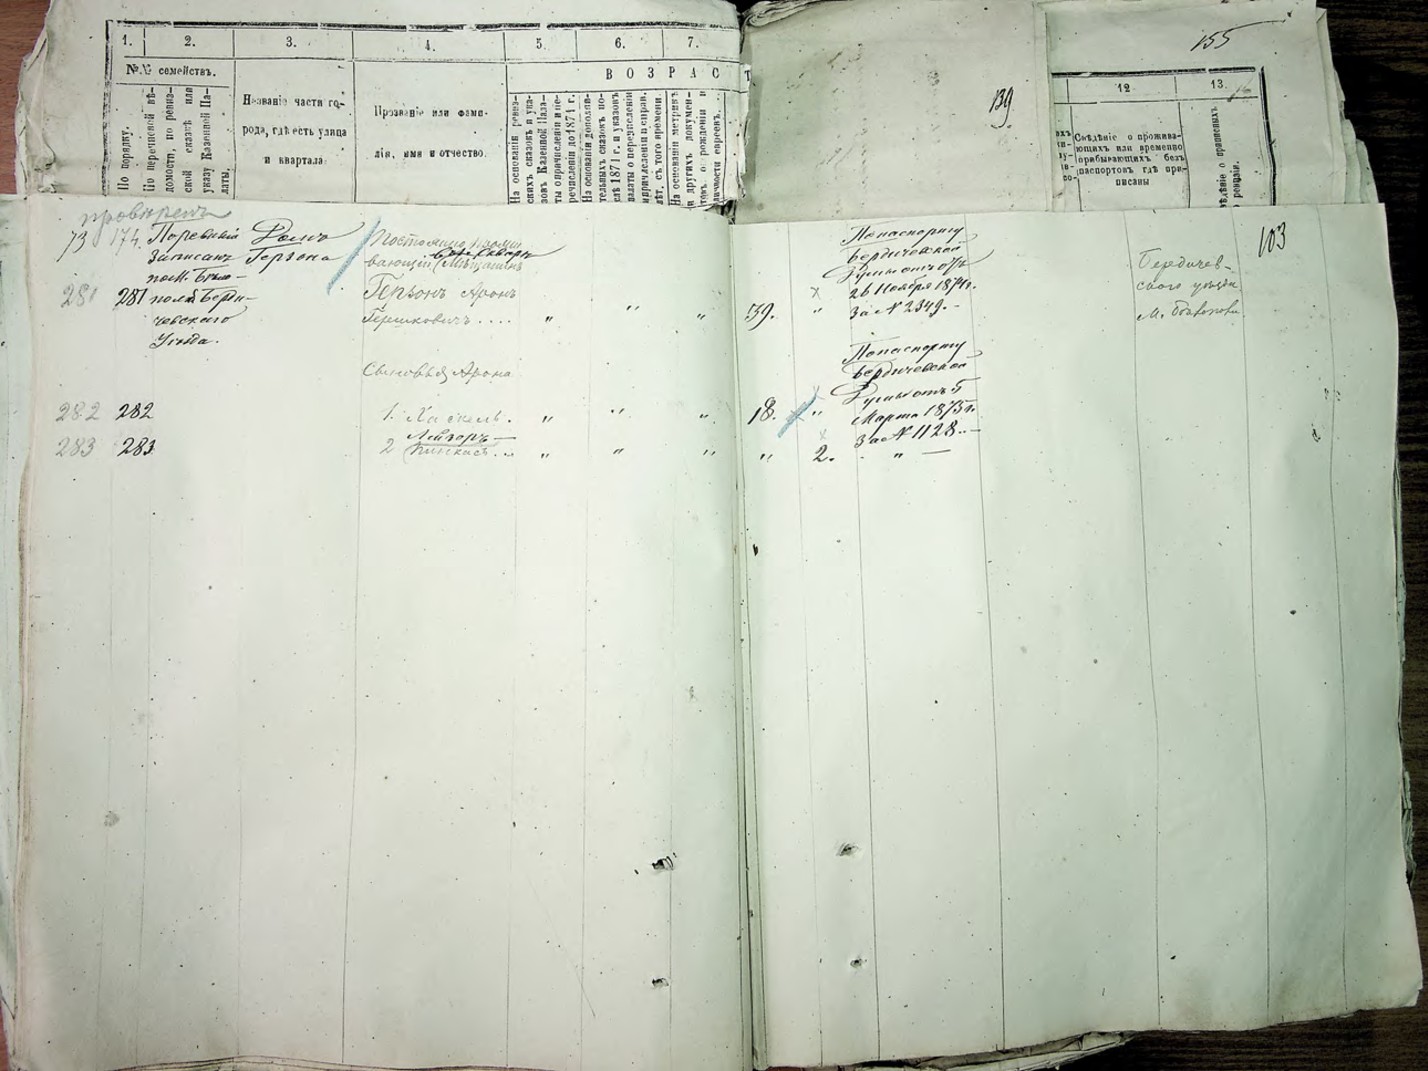 1.
2.
3.
4.
5.
6.
7.
№№ семействъ.
По порядку.
По перечневой вѣ-
домости, по ревиз-
ской сказкѣ или
указу Казенной Па-
латы.
Названіе части го-
рода, гдѣ есть улица
и квартала
Прозваніе или фами-
лія, имя и отчество.
ВОЗРАСТ
На основаніи ревиз-
скихъ сказокъ и ука-
зовъ Казенной Пала-
ты о причисленіи и пе-
речисленіи до 1871 г.
На основаніи дополни-
тельныхъ сказокъ по-
слѣ 1871 г. и указовъ
палаты о перечисленіи
и причисленіи
лѣт. съ того времени.
На основаніи метрикъ
и других докумен-
товъ о рожденіи и
личности евреевъ.
139
155
12
13.
Свѣдѣніе о прожива-
ющихъ или временно
прибывающихъ безъ
паспортовъ гдѣ при-
писаны
103
провѣренъ
73
174.
Домъ
Герзона
записанъ
пом.
281
281
Берди-
чевскаго
Уѣзда.
Постоянно прожи
вающій
Мѣщанинъ
Аронъ
Гершковичъ....
"
"
"
39.
"
По паспорту
Бердичевской
Думы отъ
26 Ноября 1874г.
За № 2349.-
Бердичев-
скаго уѣзда
М.
Сыновья Арона
282
282
1.
Хаскель.
"
"
"
18.
"
По паспорту
Бердичевской
Думы отъ
Марта 1875г.
За № 1128.-
283
283
2
Лейзоръ
Пинкасъ...
"
"
"
"
2.
"